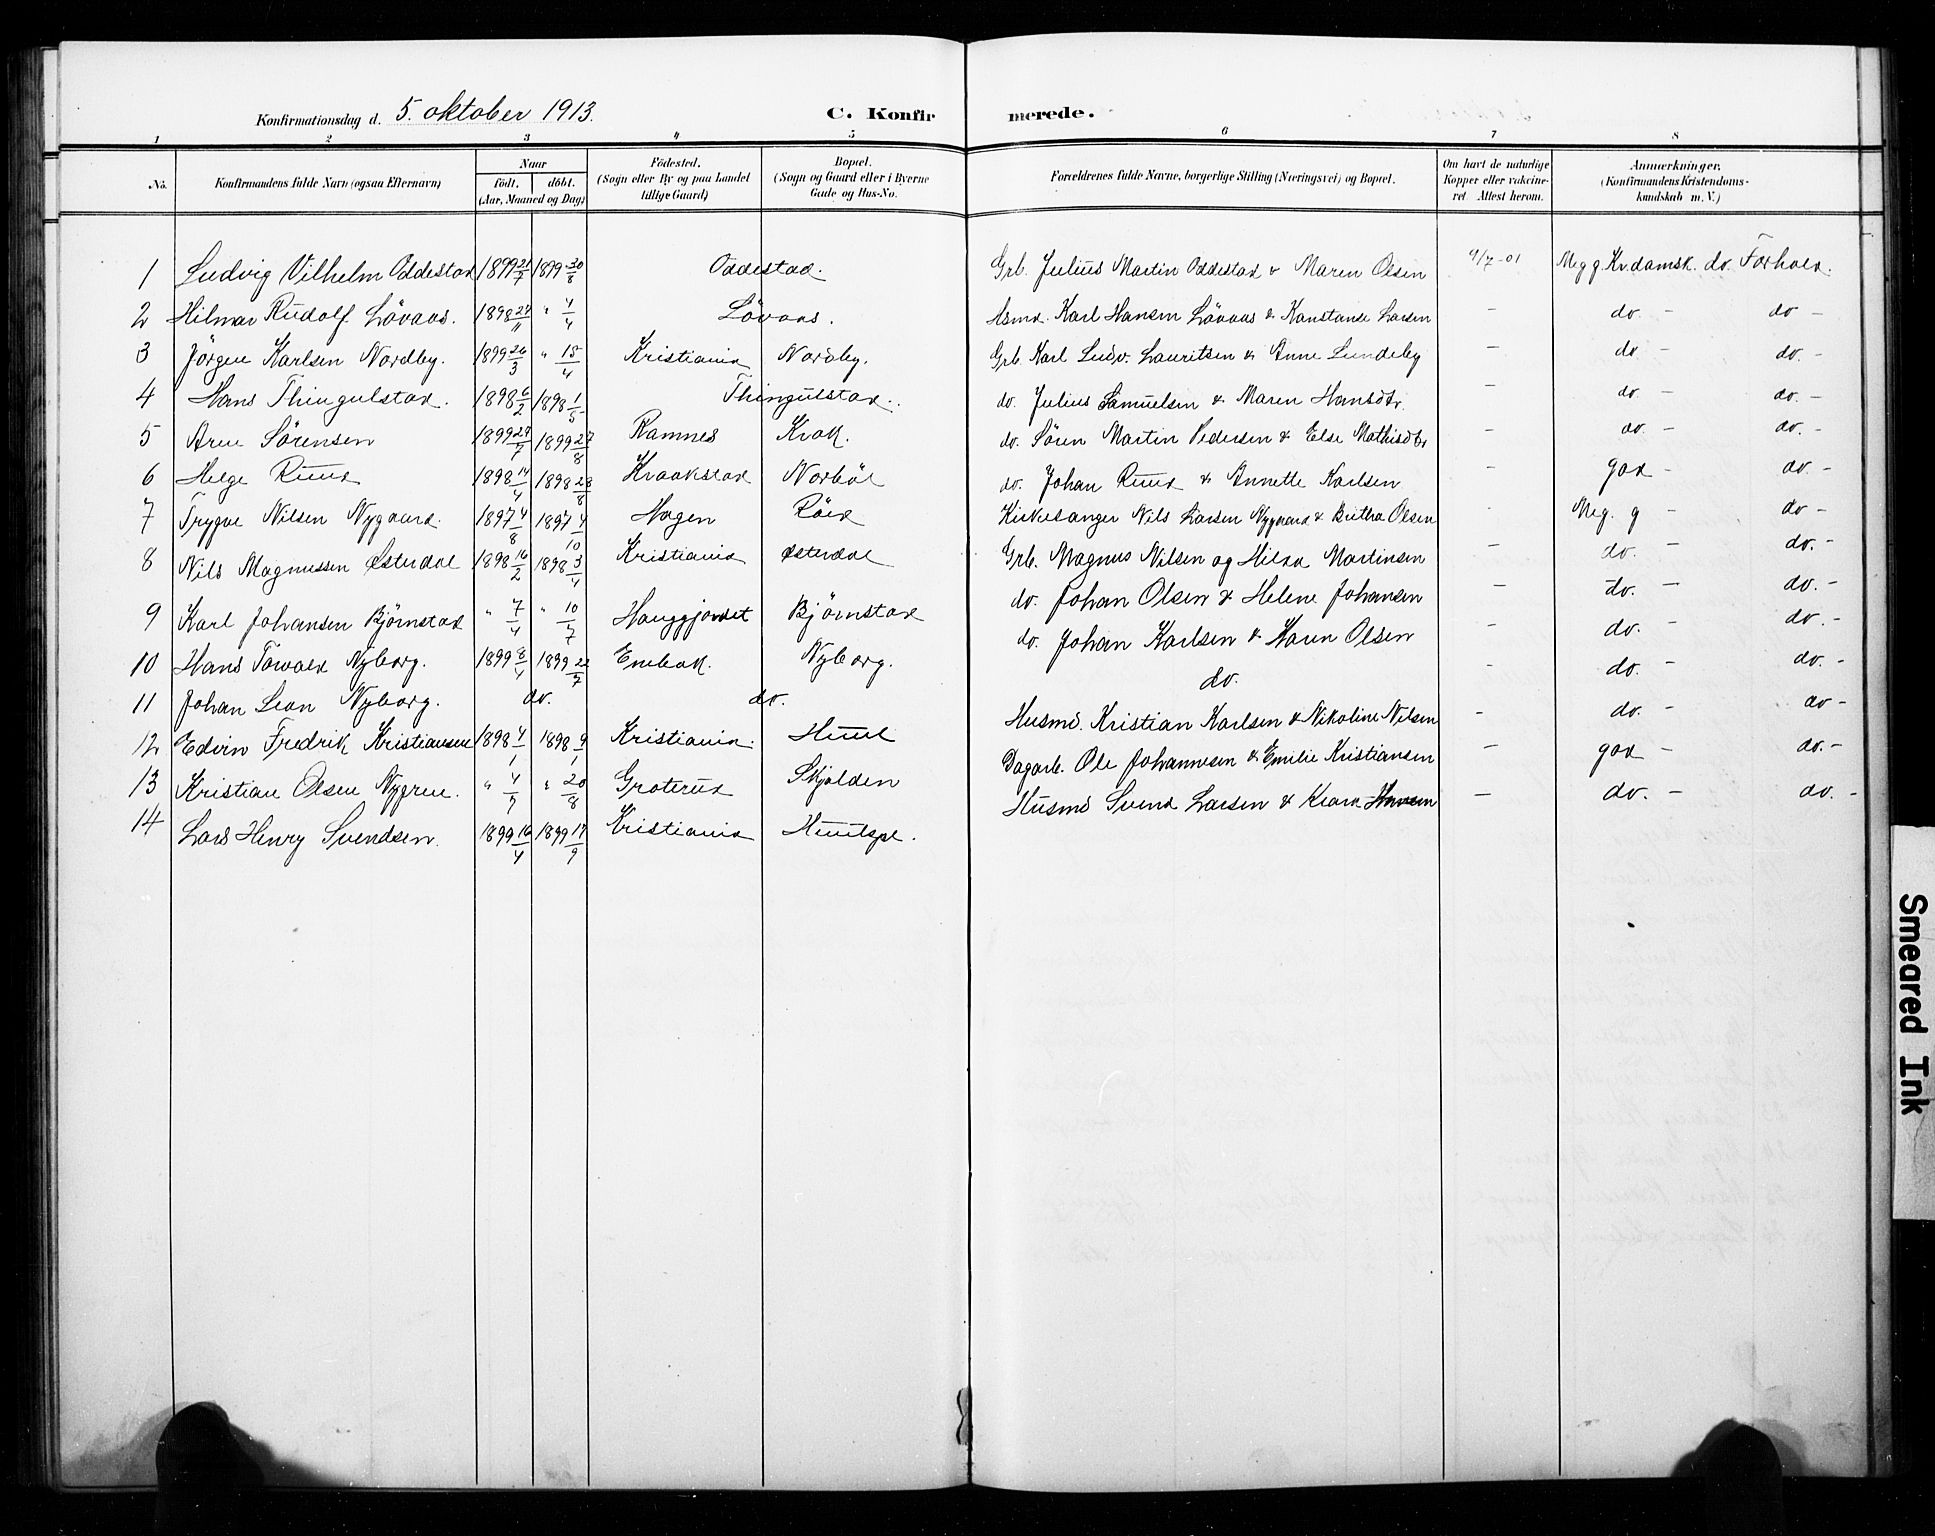 Konfirmationsdag d. 5. oktober 1913. C. Konfirmerede.
1 2 3 4 5 6 7 8
No. Konfirmandens fulde Navn (ogsaa Efternavn) Naar født. døbt. (Aar, Maaned og Dag) Fødested. (Sogn eller By og paa Landet tillige Gaard) Bopæl. (Sogn og Gaard eller i Byerne Gade og Hus-No. Forældrenes fulde Navne, borgerlige Stilling (Næringsvei) og Bopæl. Om havt de naturlige Kopper eller vakcineret. Attest herom. Anmærkninger. (Konfirmandens Kristendomskundskab m. V.)
1 Ludvig Vilhelm Oddestad 1899 21/7 1899 20/8 Oddestad. Grb. Julius Martin Oddestad & Maren Olsen 9/7-01 Meg g. Kr.damsk. do. Forhold.
2 Hilmar Rudolf Lövaas. 1898 27/11 " 4/4 Lövaas. Karl Hansen Lövaas & Konstanse Larsen – do. – do –
3 Jörgen Karlsen Nordby. 1899 26/3 " 15/4 Kristiania Nordby. Grb. Karl Ludv. Lauritsen & Anne Lundeby – do – do. –
4 Hans Thingulstad. 1898 6/2 1898 1/5 Thingulstad. do. Julius Samuelsen & Maren Hansdtr. – do – do. –
5 Arne Sörensen 1899 27/7 1899 27/8 Ramnes Krok. do. Sören Martin Pedersen & Else Mathisdtr – do. – do. –
6 Helge Ruud 1898 14/4 1898 28/8 Kraakstad Norböl do. Johan Ruud & Annette Karlsen – god – do. –
7 Trygve Nilsen Nygaard. 1897 4/8 1897 4/10 Hagen Röed Kirkesanger Nils Larsen Nygaard & Britha Olsen – Meg. g – do –
8 Nils Magnussen Østerdal 1898 16/2 1898 3/4 Kristiania Østerdal Grb. Magnus Nilsen og Hilda Martinsen – do. – do. –
9 Karl Johansen Bjørnstad " 7/4 " 10/7 Hauggjordet Bjørnstad do. Johan Olsen & Helene Johansen – do. – do. –
10 Hans Torvald Nyborg. 1899 8/4 1899 22/7 Enebak. Nyborg. do. Johan Karlsen & Karen Olsen – do. – do. –
11 Johan Leon Nyborg. do. do. do. – do. – do. –
12 Edvin Fredrik Kristiansen 1898 4/1 1898 9/1 Kristiania. Huul Husmd. Kristian Karlsen & Nikoline Nilsen – do. – do –
13 Kristian Olsen Nygren. " 4/7 " 20/8 Groterud Skjolden Dagarb. Ole Johannesen & Emilie Kristiansen – god – do. –
14 Lars Henry Svendsen. 1899 16/4 1899 17/9 Kristiania Husmd Svend Larsen & Klara – do. – do. –
Smeared Ink